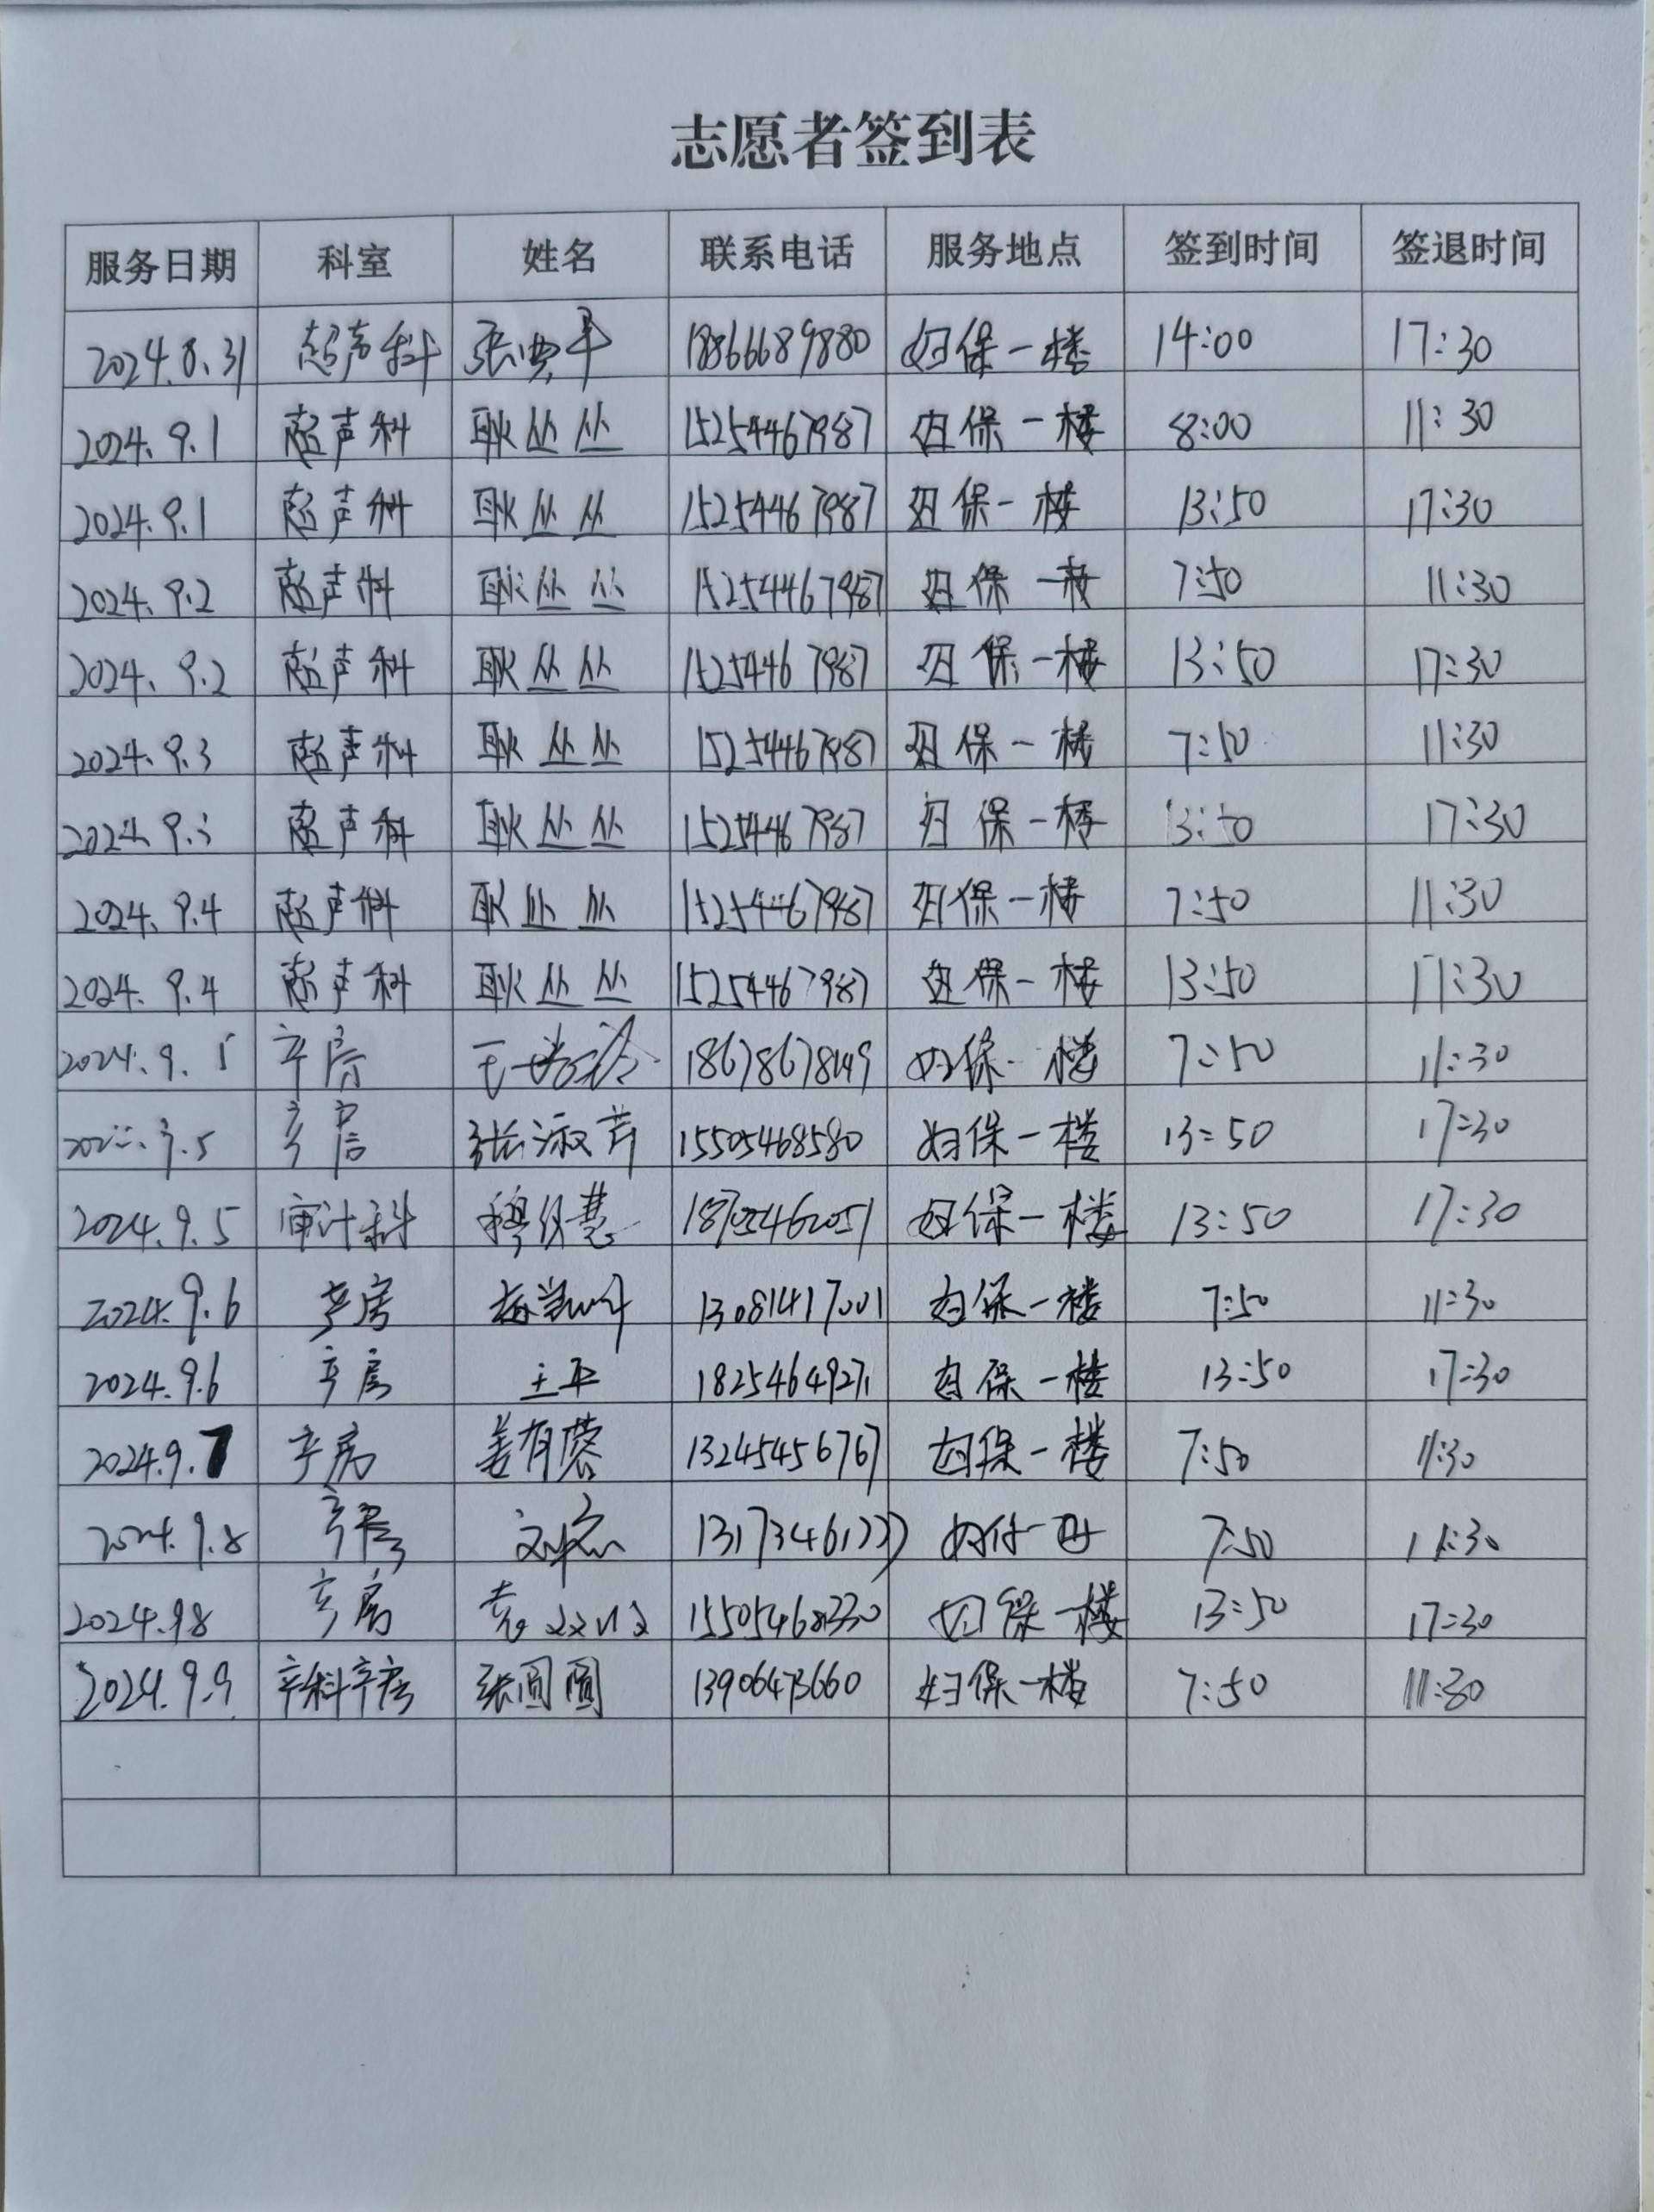 志愿者签到表
服务日期 科室 姓名 联系电话 服务地点 签到时间 签退时间
2024.8.31 超声科 18866689880 妇保一楼 14:00 17:30
2024.9.1 超声科 耿丛丛 15254467987 妇保一楼 8:00 11:30
2024.9.1 超声科 耿丛丛 15254467987 妇保一楼 13:50 17:30
2024.9.2 超声科 耿丛丛 15254467987 妇保一楼 7:50 11:30
2024.9.2 超声科 耿丛丛 15254467987 妇保一楼 13:50 17:30
2024.9.3 超声科 耿丛丛 15254467987 妇保一楼 7:50 11:30
2024.9.3 超声科 耿丛丛 15254467987 妇保一楼 13:50 17:30
2024.9.4 超声科 耿丛丛 15254467987 妇保一楼 7:50 11:30
2024.9.4 超声科 耿丛丛 15254467987 妇保一楼 13:50 17:30
2024.9.5 产房 妇保一楼 7:50 11:30
9.5 产房 张淑芹 15505468580 妇保一楼 13:50 17:30
2024.9.5 审计科 妇保一楼 13:50 17:30
2024.9.6 产房 13081417001 妇保一楼 7:50 11:30
2024.9.6 产房 王平 妇保一楼 13:50 17:30
2024.9.7 产房 姜有蓉 13245456767 妇保一楼 7:50 11:30
2024.9.8 产房 7:50 11:30
2024.9.8 产房 15505468330 妇保一楼 13:50 17:30
2024.9.9 产科产房 张圆圆 13906473660 妇保一楼 7:50 11:30